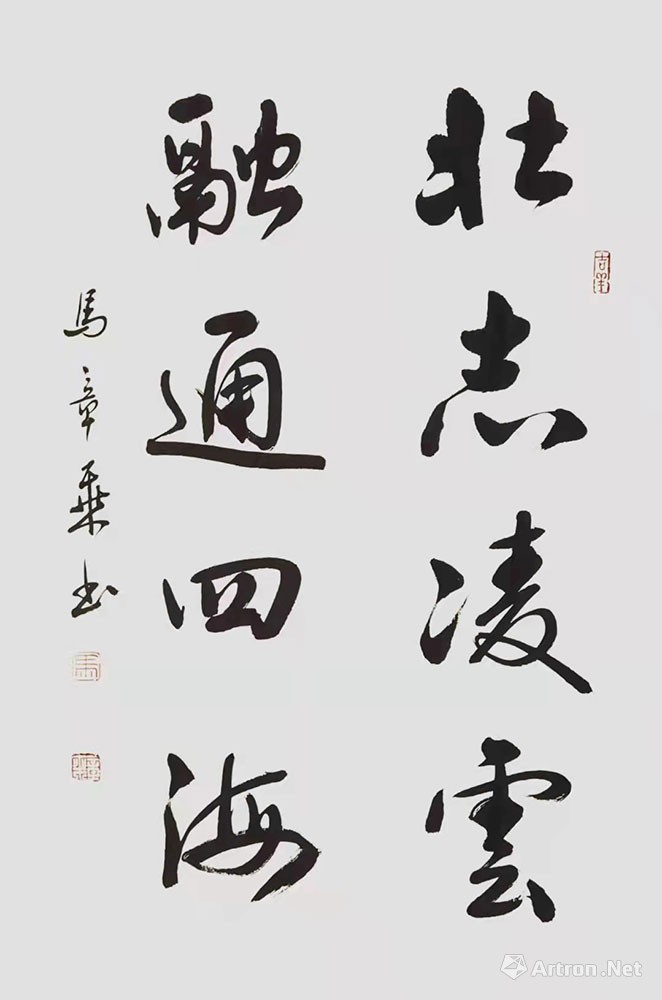 壮志凌雲
融通四海
馬章乘书
Artron.Net